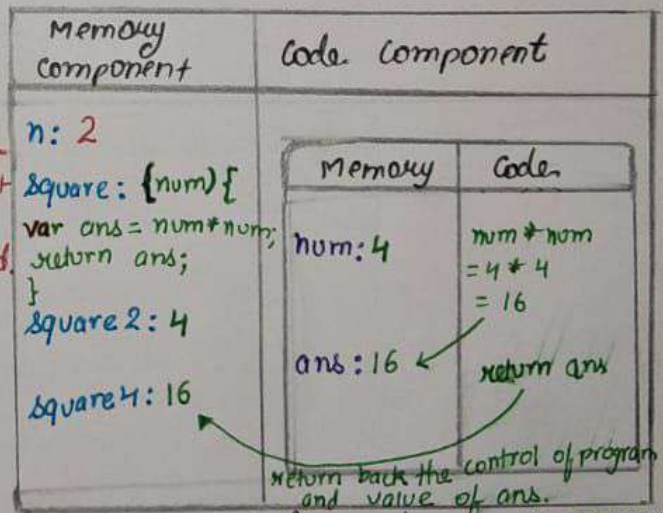 Memory component
Code component
n: 2
square: {num) {
var ans = num*num;
return ans;
}
square 2: 4
square 4: 16
Memory
Code
num: 4
num * num
= 4 * 4
= 16
ans: 16
return ans
return back the control of program
and value of ans.